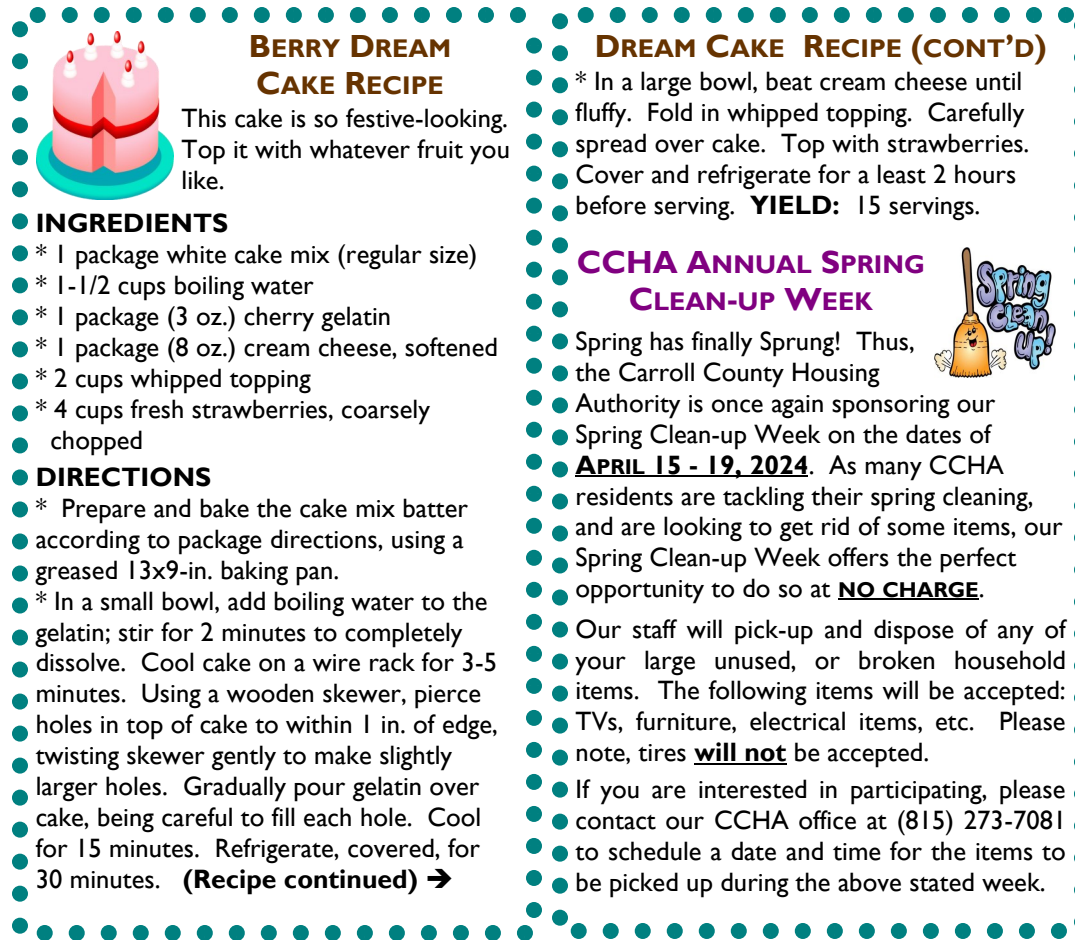 BERRY DREAM
CAKE RECIPE
This cake is so festive-looking.
Top it with whatever fruit you
like.
INGREDIENTS
* 1 package white cake mix (regular size)
* 1-1/2 cups boiling water
* 1 package (3 oz.) cherry gelatin
* 1 package (8 oz.) cream cheese, softened
* 2 cups whipped topping
* 4 cups fresh strawberries, coarsely
chopped
DIRECTIONS
* Prepare and bake the cake mix batter
according to package directions, using a
greased 13x9-in. baking pan.
* In a small bowl, add boiling water to the
gelatin; stir for 2 minutes to completely
dissolve. Cool cake on a wire rack for 3-5
minutes. Using a wooden skewer, pierce
holes in top of cake to within 1 in. of edge,
twisting skewer gently to make slightly
larger holes. Gradually pour gelatin over
cake, being careful to fill each hole. Cool
for 15 minutes. Refrigerate, covered, for
30 minutes. (Recipe continued) ➔
DREAM CAKE RECIPE (CONT'D)
* In a large bowl, beat cream cheese until
fluffy. Fold in whipped topping. Carefully
spread over cake. Top with strawberries.
Cover and refrigerate for a least 2 hours
before serving. YIELD: 15 servings.
CCHA ANNUAL SPRING
CLEAN-UP WEEK
Spring
Clean
Up!
Spring has finally Sprung! Thus,
the Carroll County Housing
Authority is once again sponsoring our
Spring Clean-up Week on the dates of
APRIL 15 - 19, 2024. As many CCHA
residents are tackling their spring cleaning,
and are looking to get rid of some items, our
Spring Clean-up Week offers the perfect
opportunity to do so at NO CHARGE.
Our staff will pick-up and dispose of any of
your large unused, or broken household
items. The following items will be accepted:
TVs, furniture, electrical items, etc. Please
note, tires will not be accepted.
If you are interested in participating, please
contact our CCHA office at (815) 273-7081
to schedule a date and time for the items to
be picked up during the above stated week.